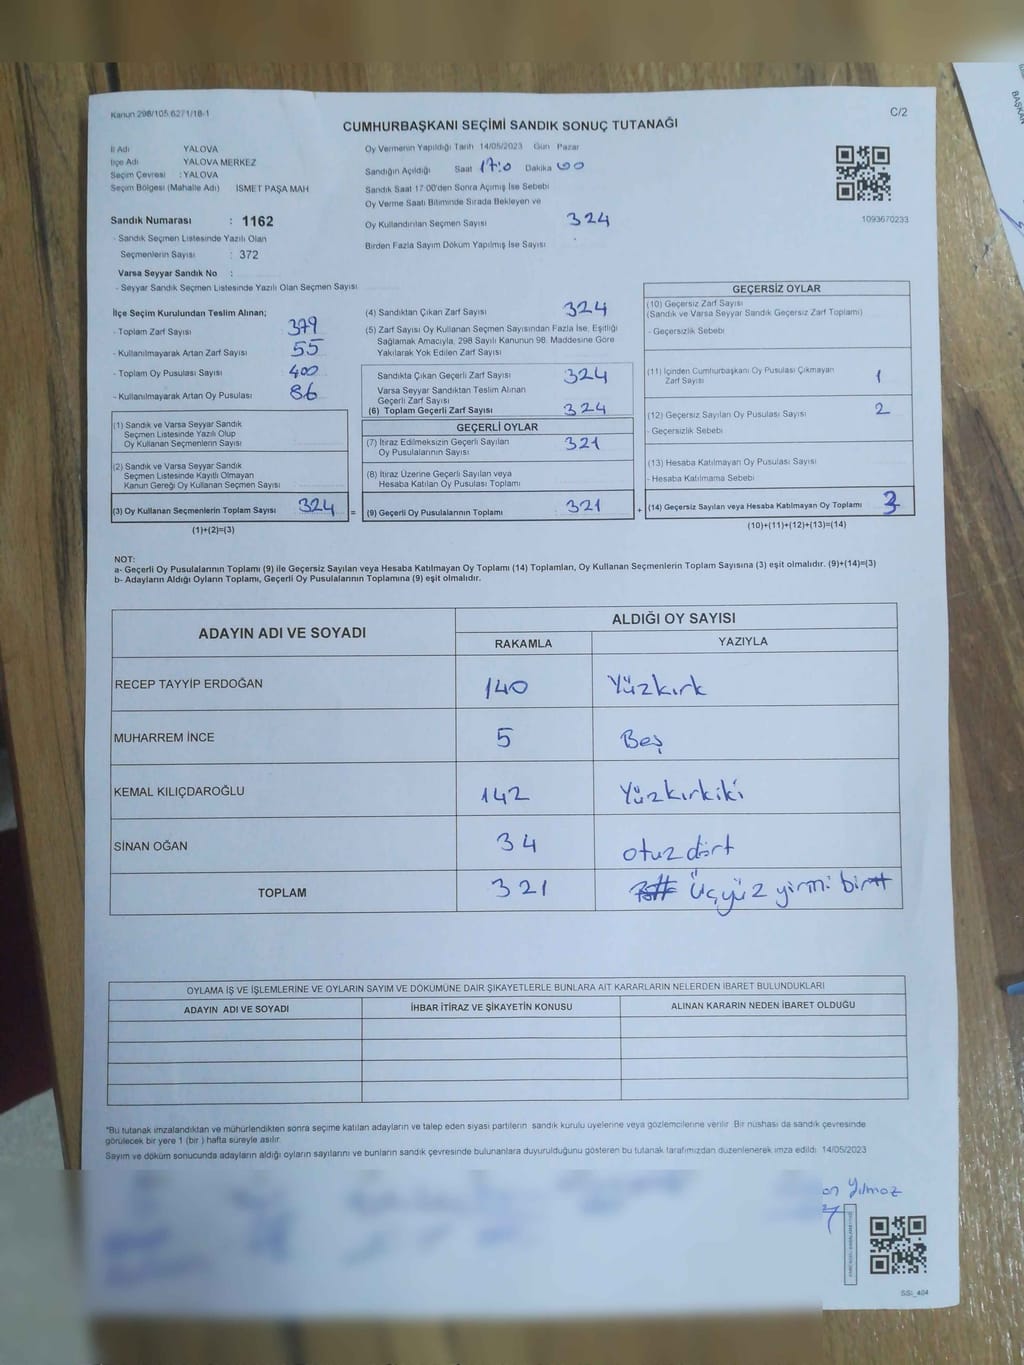 Kanun 298/105 6271/18-1
C/2
CUMHURBAŞKANI SEÇİMİ SANDIK SONUÇ TUTANAĞI
İl Adı YALOVA
İlçe Adı YALOVA MERKEZ
Seçim Çevresi : YALOVA
Seçim Bölgesi (Mahalle Adı) İSMET PAŞA MAH
Sandık Numarası : 1162
- Sandık Seçmen Listesinde Yazılı Olan
Seçmenlerin Sayısı : 372
Varsa Seyyar Sandık No :
- Seyyar Sandık Seçmen Listesinde Yazılı Olan Seçmen Sayısı
Oy Vermenin Yapıldığı Tarih 14/05/2023 Gün Pazar
Sandığın Açıldığı Saat 17:0 Dakika 00
Sandık Saat 17:00'den Sonra Açılmış İse Sebebi
Oy Verme Saati Bitiminde Sırada Bekleyen ve
Oy Kullandırılan Seçmen Sayısı 324
Birden Fazla Sayım Döküm Yapılmış İse Sayısı
1093670233
İlçe Seçim Kurulundan Teslim Alınan;
- Toplam Zarf Sayısı 379
- Kullanılmayarak Artan Zarf Sayısı 55
- Toplam Oy Pusulası Sayısı 400
- Kullanılmayarak Artan Oy Pusulası 86
(1) Sandık ve Varsa Seyyar Sandık
Seçmen Listesinde Yazılı Olup
Oy Kullanan Seçmenlerin Sayısı
(2) Sandık ve Varsa Seyyar Sandık
Seçmen Listesinde Kayıtlı Olmayan
Kanun Gereği Oy Kullanan Seçmen Sayısı
(3) Oy Kullanan Seçmenlerin Toplam Sayısı 324 =
(1)+(2)=(3)
(4) Sandıktan Çıkan Zarf Sayısı 324
(5) Zarf Sayısı Oy Kullanan Seçmen Sayısından Fazla İse, Eşitliği
Sağlamak Amacıyla, 298 Sayılı Kanunun 98. Maddesine Göre
Yakılarak Yok Edilen Zarf Sayısı
Sandıkta Çıkan Geçerli Zarf Sayısı 324
Varsa Seyyar Sandıktan Teslim Alınan
Geçerli Zarf Sayısı
(6) Toplam Geçerli Zarf Sayısı 324
GEÇERLİ OYLAR
(7) İtiraz Edilmeksizin Geçerli Sayılan
Oy Pusulalarının Sayısı 321
(8) İtiraz Üzerine Geçerli Sayılan veya
Hesaba Katılan Oy Pusulası Toplamı
(9) Geçerli Oy Pusulalarının Toplamı 321 +
GEÇERSİZ OYLAR
(10) Geçersiz Zarf Sayısı
(Sandık ve Varsa Seyyar Sandık Geçersiz Zarf Toplamı)
- Geçersizlik Sebebi
(11) İçinden Cumhurbaşkanı Oy Pusulası Çıkmayan
Zarf Sayısı 1
(12) Geçersiz Sayılan Oy Pusulası Sayısı 2
- Geçersizlik Sebebi
(13) Hesaba Katılmayan Oy Pusulası Sayısı
- Hesaba Katılmama Sebebi
(14) Geçersiz Sayılan veya Hesaba Katılmayan Oy Toplamı 3
(10)+(11)+(12)+(13)=(14)
NOT:
a- Geçerli Oy Pusulalarının Toplamı (9) ile Geçersiz Sayılan veya Hesaba Katılmayan Oy Toplamı (14) Toplamları, Oy Kullanan Seçmenlerin Toplam Sayısına (3) eşit olmalıdır. (9)+(14)=(3)
b- Adayların Aldığı Oyların Toplamı, Geçerli Oy Pusulalarının Toplamına (9) eşit olmalıdır.
ADAYIN ADI VE SOYADI ALDIĞI OY SAYISI
RAKAMLA YAZIYLA
RECEP TAYYİP ERDOĞAN 140 Yüzkırk
MUHARREM İNCE 5 Beş
KEMAL KILIÇDAROĞLU 142 Yüzkırkiki
SİNAN OĞAN 34 otuz dört
TOPLAM 321 Üçyüz yirmi bir
OYLAMA İŞ VE İŞLEMLERİNE VE OYLARIN SAYIM VE DÖKÜMÜNE DAİR ŞİKAYETLERLE BUNLARA AİT KARARLARIN NELERDEN İBARET BULUNDUKLARI
ADAYIN ADI VE SOYADI İHBAR İTİRAZ VE ŞİKAYETİN KONUSU ALINAN KARARIN NEDEN İBARET OLDUĞU
*Bu tutanak imzalandıktan ve mühürlendikten sonra seçime katılan adayların ve talep eden siyasi partilerin sandık kurulu üyelerine veya gözlemcilerine verilir. Bir nüshası da sandık çevresinde
görülecek bir yere 1 (bir ) hafta süreyle asılır.
Sayım ve döküm sonucunda adayların aldığı oyların sayılarını ve bunların sandık çevresinde bulunanlara duyurulduğunu gösteren bu tutanak tarafımızdan düzenlenerek imza edildi. 14/05/2023
Yılmaz
SSI_404